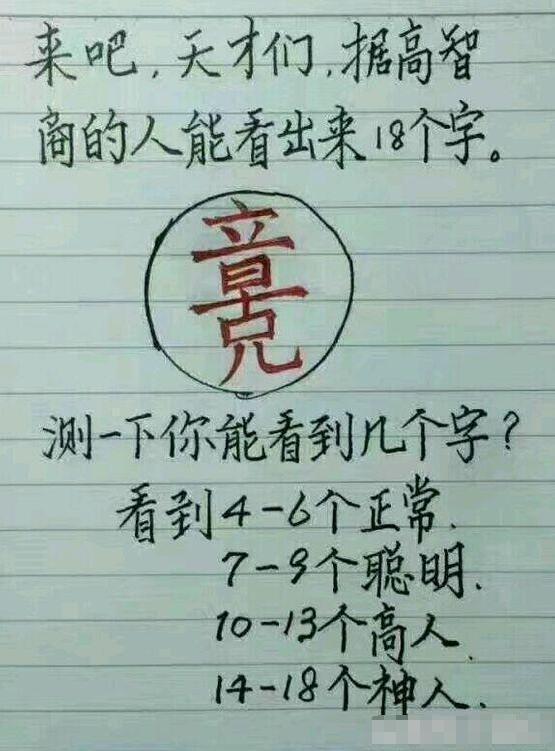 来吧,天才们,据高智
商的人能看出来18个字。
测一下你能看到几个字?
看到4-6个正常.
7-9个聪明.
10-13个高人.
14-18个神人.